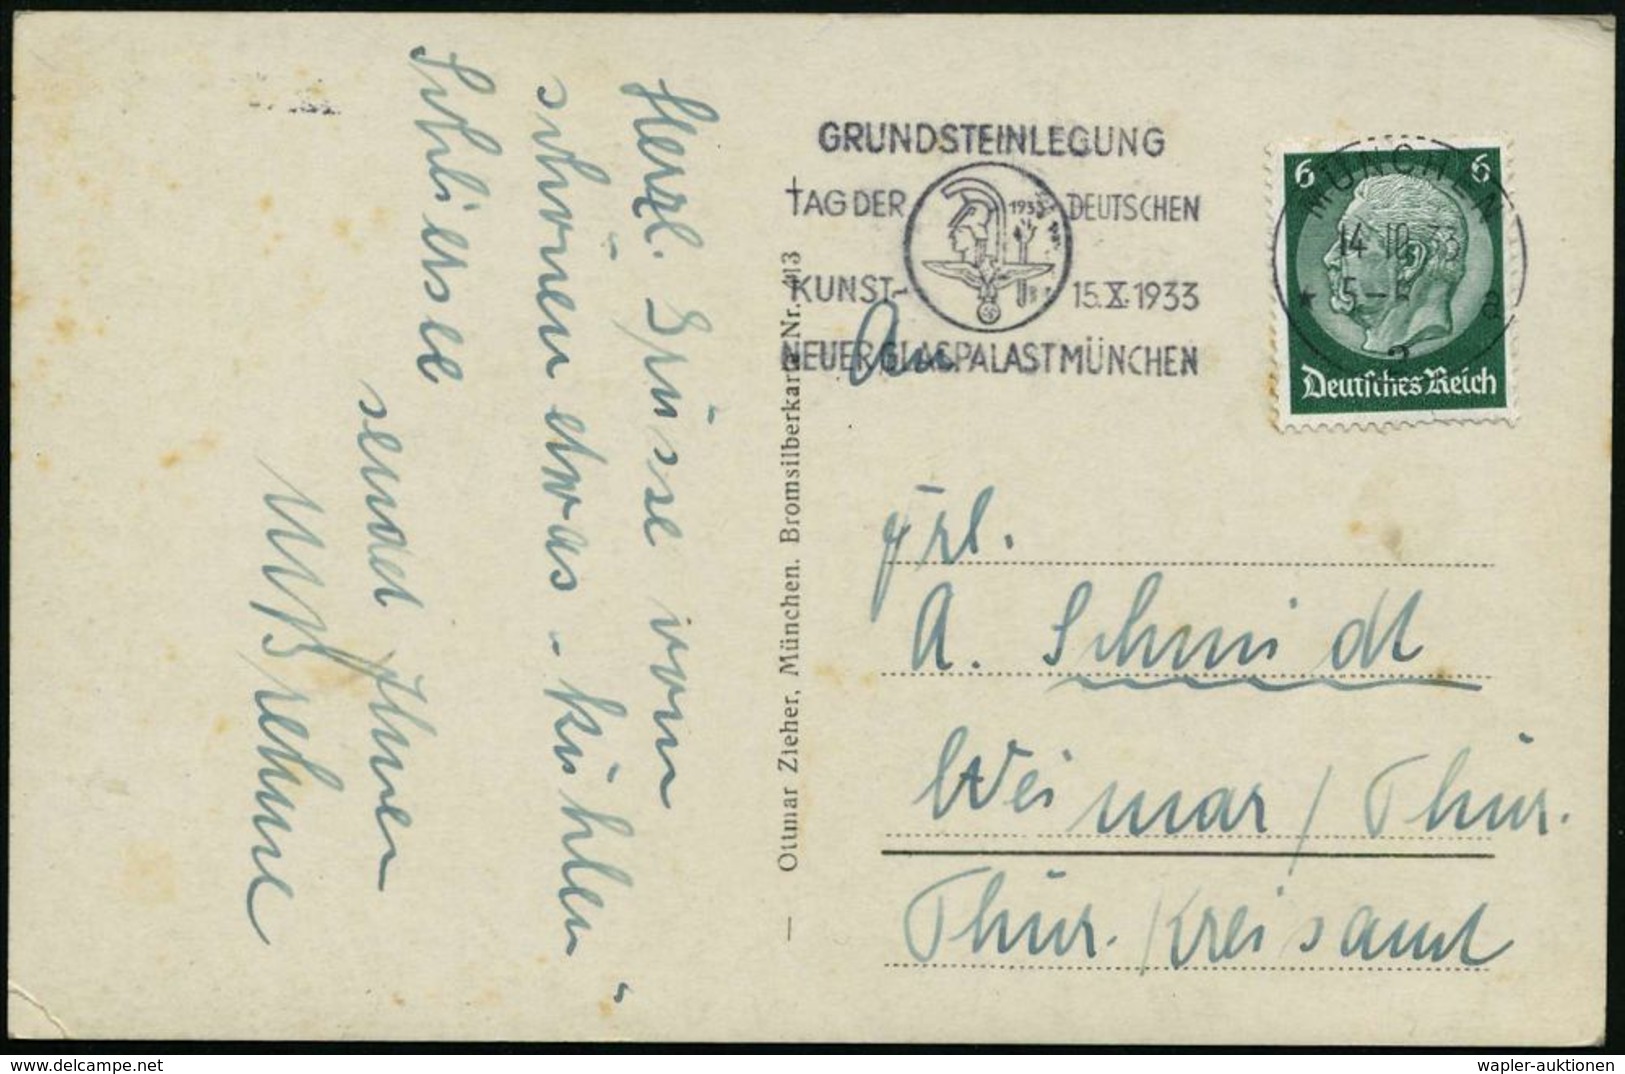 Herzl. Grüsse vom
schönen etwas - kühlen "
Schliersee
sendet Ihnen
GRUNDSTEINLEGUNG
TAG DER 1933 DEUTSCHEN
KUNST- 15.X.1933
NEUER GLASPALAST MÜNCHEN
MÜNCHEN
14.10.33
5-
* 2 a
6 6
Deutsches Reich
An
Frl.
A. Schmidt
Weimar / Thür.
Thür. Kreisamt
Ottmar Zieher, München. Bromsilberkarte Nr. 413
wapler-auktionen